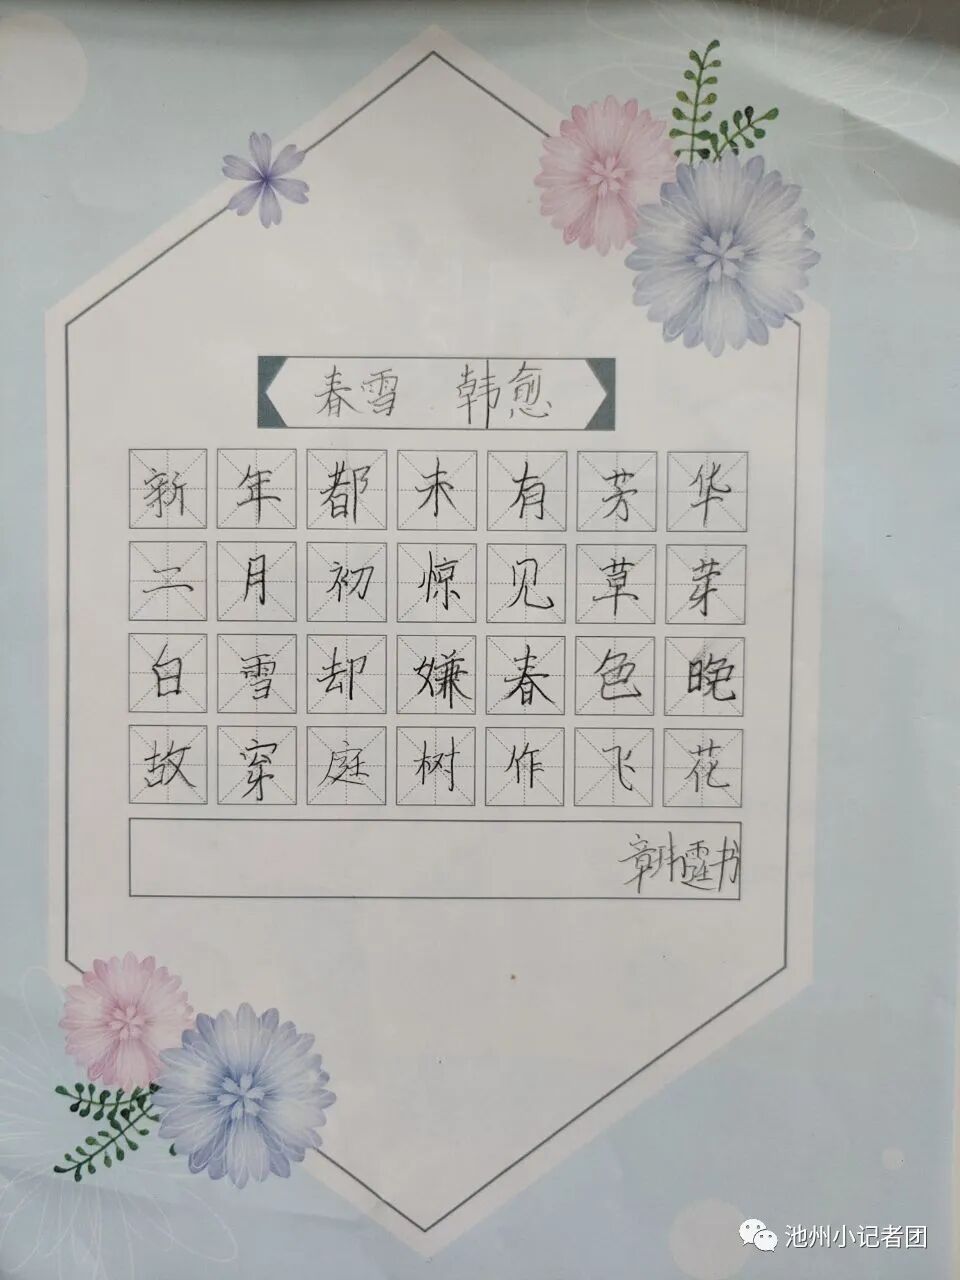 春雪 韩愈
新年都未有芳华
二月初惊见草芽
白雪却嫌春色晚
故穿庭树作飞花
章玮霆书
池州小记者团